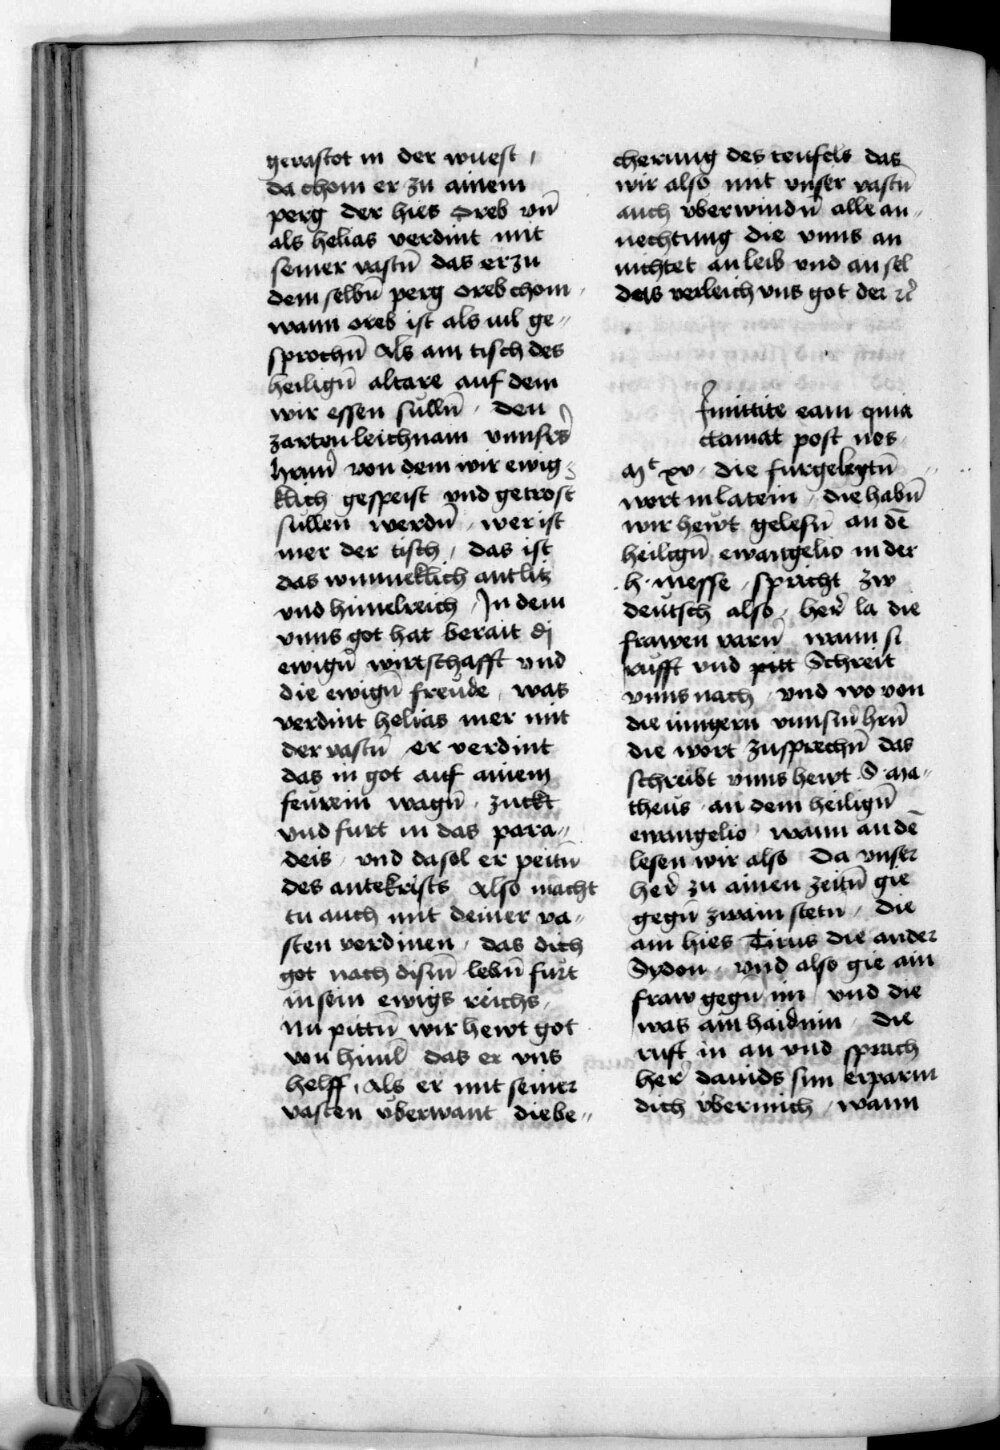 gevastot in der wuest /
da chom er zu ainem
perg der hies Oreb vn̄
als helias verdint mit
seiner vastn̄ das er zu
dem selbn̄ perg oreb chom /
wann oreb ist als uil ge〃
sprochn̄ Als am tisch des
heilign̄ altare auf dem
wir essen sulln̄ / den
zarten leichnam vnnsers
hrnn̄ von dem wir ewig〃
klich gespeist vnd getrost
sullen werdn̄ / wer ist
mer der tisch / das ist
das wunneklich antlitz
vnd himelreich / In dem
vnns got hat berait dj
ewign̄ wirtschafft vnd
die ewign̄ freude / was
verdint helias mer mit
der vastn̄ er verdint
das in got auf ainem
feurein wagn̄ / zuckt
vnd furt in das para〃
deis / vnd da sol er peitn̄
des antekrists Also macht
tu auch mit deiner va〃
sten verdinen / das dich
got nach dism̄ lebn̄ furt
in sein ewigs reichs /
Nu pittn̄ wir hewt got
von himl̄ das er vns
helff / Als er mit seiner
vasten vberwant die be〃
cherung des teufels das
wir also mit vnser vastn̄
auch vberwindn̄ alle an〃
uechtung die vnns an
uichtet an leib vnd an sel
das verleich vns got der rc̄
Dimittite eam quia
clamat post nos /
Mt xv / die furgelegtn̄
wort in latein / die habn̄
wir hewt gelesn̄ an dē
heilign̄ ewangelio in der
.h. messe / spricht zw
deutsch also / her̄ la die
frawen varn̄ wann si
rufft vnd pitt Schreit
vnns nach / vnd wo von
die iungern vnnsm̄ hrn̄
die wort zusprechn̄ das
schreibt vnns hewt S Ma〃
theus an dem heilign̄
ewangelio / wann an dē
lesen wir also Da vnser
her̄ zu ainen zeitn̄ gie
gegn̄ zwain stetn̄ / die
ain hies Tirus die ander
Sydon / vnd also gie ain
fraw gegn̄ im / vnd die
was ain haidnin / die
ruft in an vnd sprach
her̄ dauids sun erparm
dich vber mich / wann